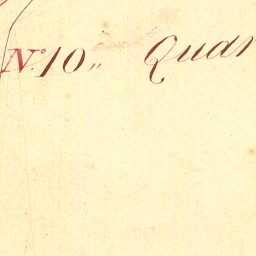 No. 10„ Quar